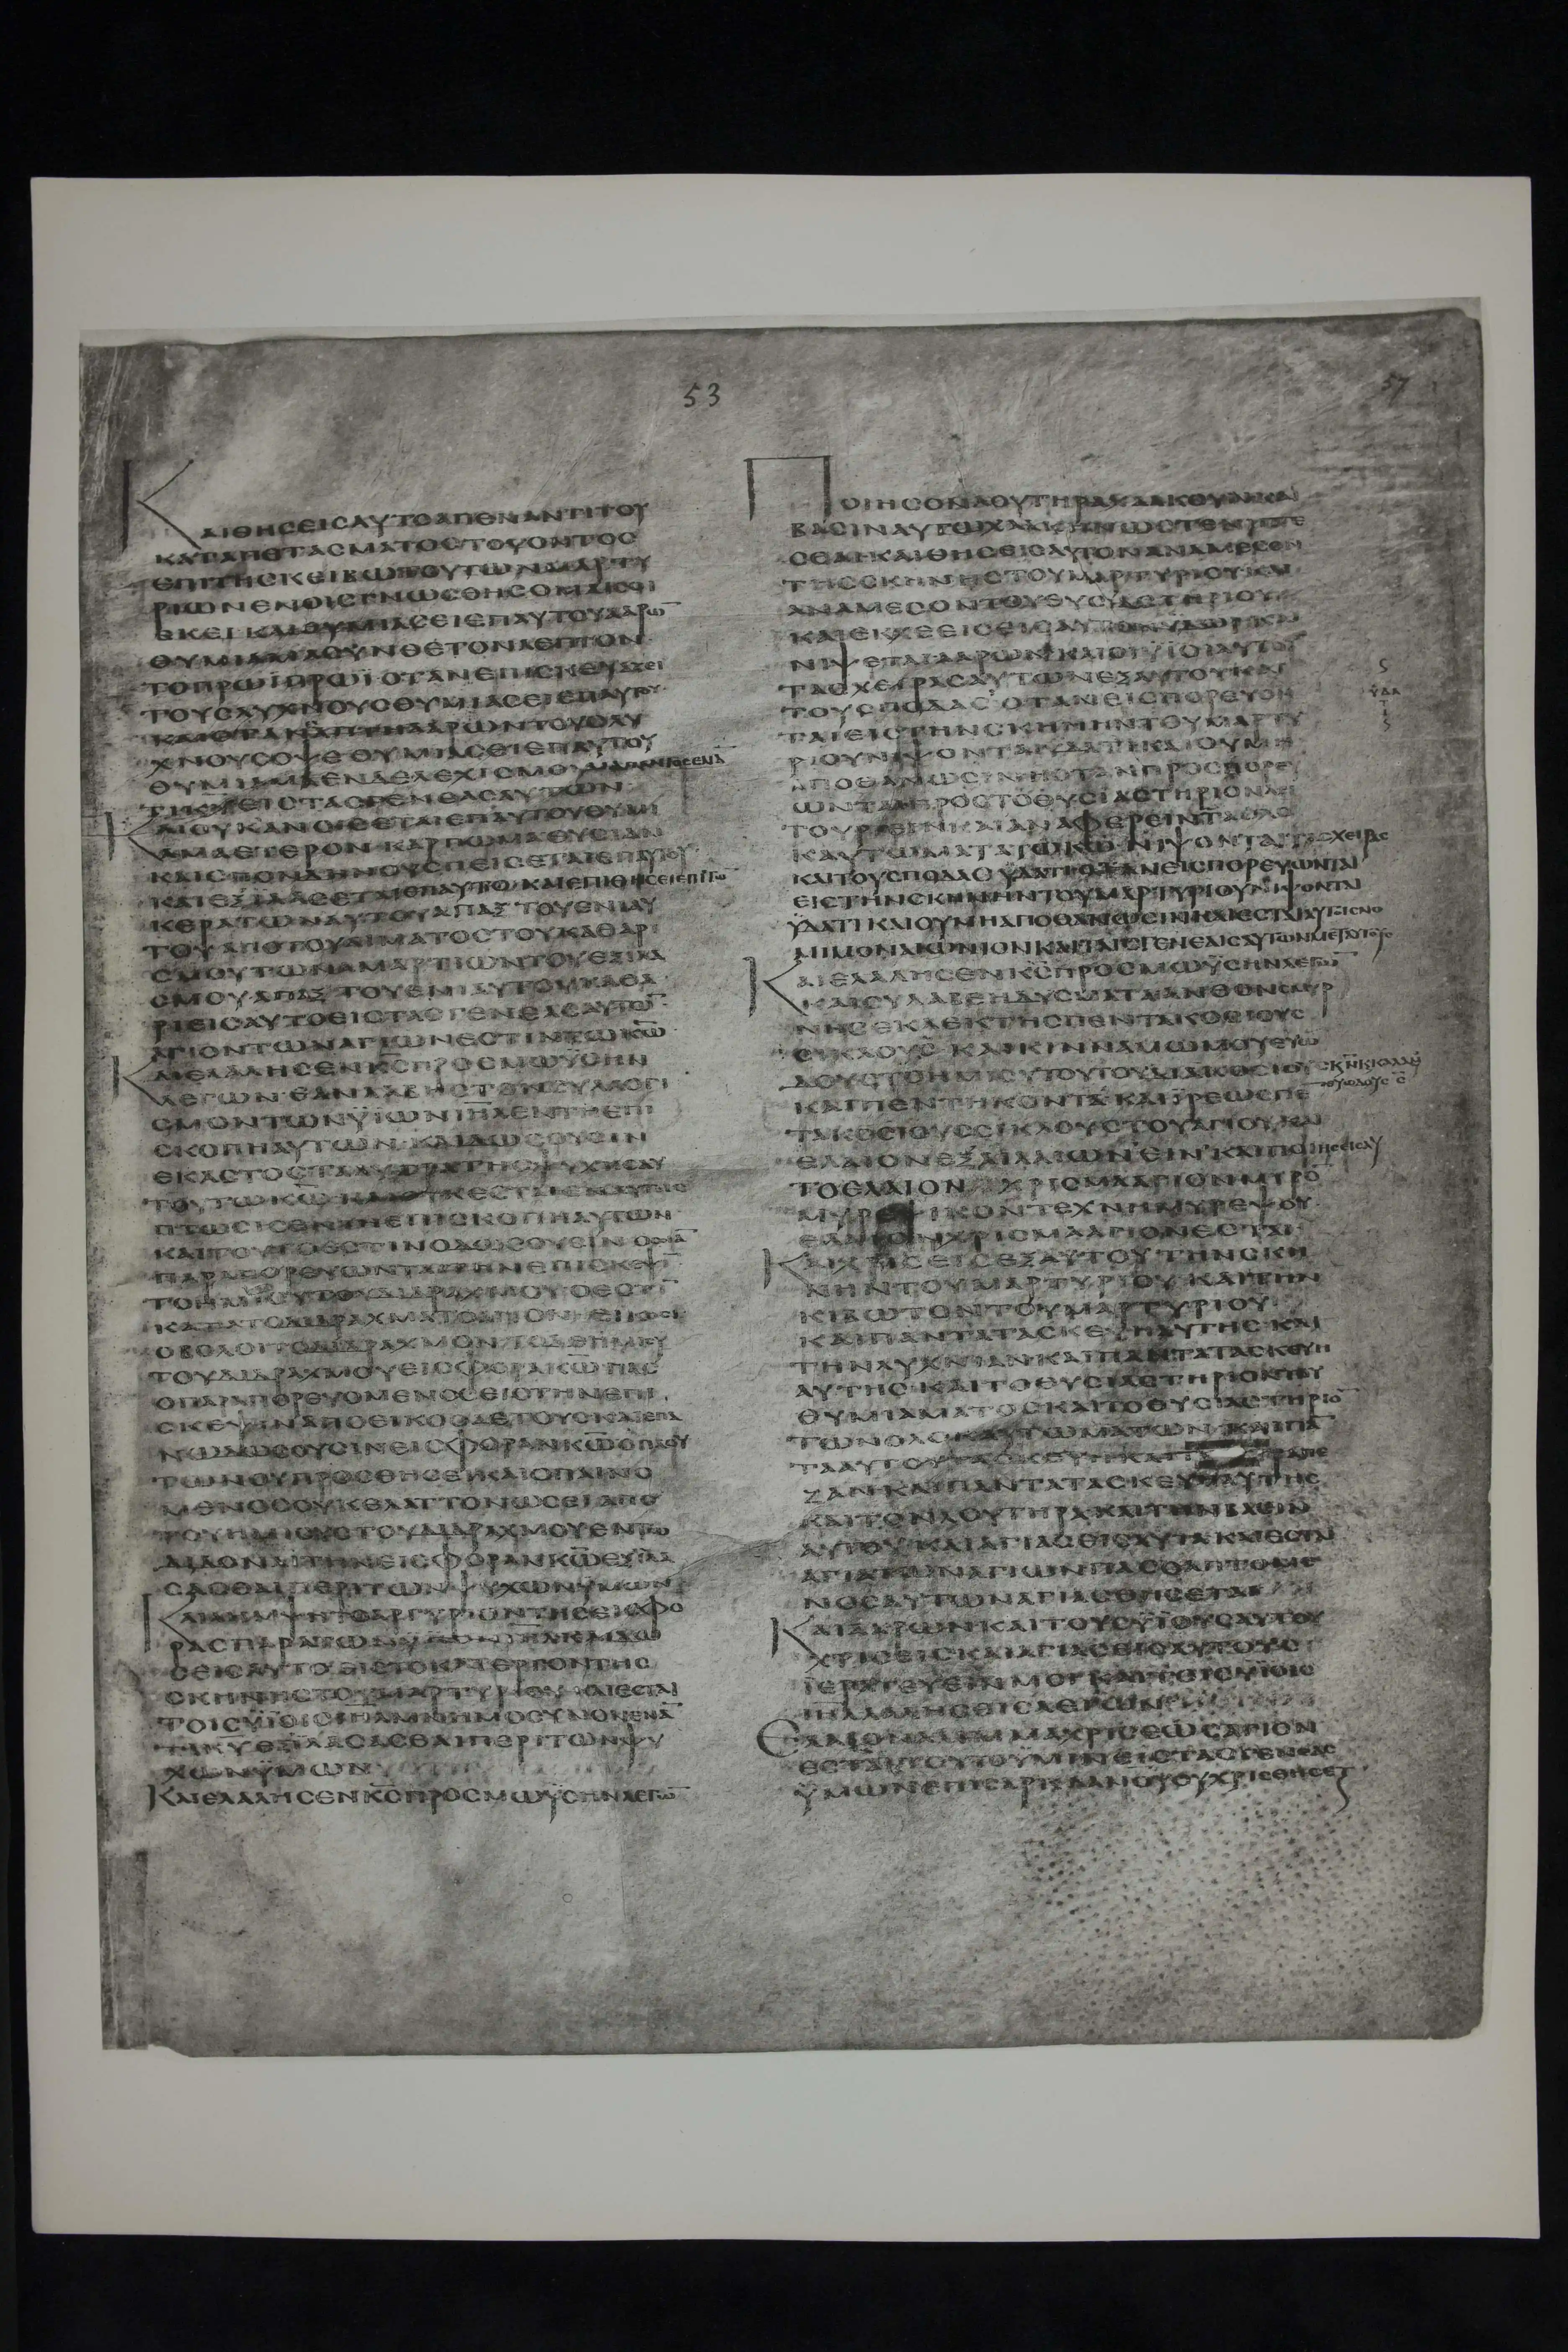 53
57
ΚΑΙΘΗСΕΙСΑΥΤΟΑΠΕΝΑΝΤΙΤΟΥ
ΚΑΤΑΠΕΤΑСΜΑΤΟСΤΟΥΟΝΤΟС
ΕΠΙΤΗСΚΕΙΒΩΤΟΥΤΩΝΜΑΡΤΥ
ΡΙΩΝΕΝΟΙСΓΝΩСΘΗСΟΜΑΙСΟΙ
ΕΚΕΙΚΑΙΘΥΜΙΑСΕΙΕΠΑΥΤΟΥΑΑΡΩ̅
ΘΥΜΙΑΜΑСΥΝΘΕΤΟΝΛΕΠΤΟΝ
ΤΟΠΡΩΪΠΡΩΪΟΤΑΝΕΠΙСΚΕΥΑΖΕΙ
ΤΟΥСΛΥΧΝΟΥСΘΥΜΙΑСΕΙΕΠΑΥΤΟΥ
ΚΑΙΟΤΑΝΕΞΑΠΤΗΑΑΡΩΝΤΟΥСΛΥ
ΧΝΟΥСΟΨΕΘΥΜΙΑСΕΙΕΠΑΥΤΟΥ
ΘΥΜΙΑΜΑΕΝΔΕΛΕΧΙСΜΟΥΔΙΑΠΑΝΤΟСΕΝΑ̅
ΤΙΚ̅Υ̅ΕΙСΤΑСΓΕΝΕΑСΑΥΤΩΝ
ΚΑΙΟΥΚΑΝΟΙСΕΤΑΙΕΠΑΥΤΟΥΘΥΜΙ
ΑΜΑΕΤΕΡΟΝ·ΚΑΡΠΩΜΑΘΥСΙΑΝ
ΚΑΙСΠΟΝΔΗΝΟΥСΠΕΙСΕΤΑΙΕΠΑΥΤΟΥ
ΚΑΙΕΞΙΛΑСΕΤΑΙΕΠΑΥΤΟΥ ΚΑΙΕΠΙΘΗСΕΙΕΠΙΤΩ̅
ΚΕΡΑΤΩΝΑΥΤΟΥΑΠΑΞΤΟΥΕΝΙΑΥ
ΤΟΥΑΠΟΤΟΥΑΙΜΑΤΟСΤΟΥΚΑΘΑΡΙ
СΜΟΥΤΩΝΑΜΑΡΤΙΩΝΤΟΥΕΞΙΛΑ
СΜΟΥ·ΑΠΑΞΤΟΥΕΝΙΑΥΤΟΥΚΑΘΑ
ΡΙΕΙСΑΥΤΟΕΙСΤΑСΓΕΝΕΑСΑΥΤΩ̅
ΑΓΙΟΝΤΩΝΑΓΙΩΝΕСΤΙΝΤΩΚ̅Ω̅
ΚΑΙΕΛΑΛΗСΕΝΚ̅С̅ΠΡΟСΜΩΥСΗΝ
ΛΕΓΩΝ·ΕΑΝΛΑΒΗСΤΟΝСΥΛΛΟΓΙ
СΜΟΝΤΩΝΥΪΩΝΙ̅Η̅Λ̅ΕΝΤΗΕΠΙ
СΚΟΠΗΑΥΤΩΝ·ΚΑΙΔΩСΟΥСΙΝ
ΕΚΑСΤΟСΤΑΛΥΤΡΑΤΗСΨΥΧΗСΑΥ
ΤΟΥΤΩΚ̅Ω̅
ΠΤΩСΙСΕΝΤΗΕΠΙСΚΟΠΗΑΥΤΩΝ
ΚΑΙΤΟΥΤΟΕСΤΙΝΟΔΩСΟΥСΙΝ
ΠΑΡΑΠΟΡΕΥΩΝΤΑΙΤΗΝΕΠΙСΚΕΨΙ̅
ΤΟΗΜΙСΥΤΟΥΔΙΔΡΑΧΜΟΥΟΕСΤΙ̅
ΚΑΤΑΤΟΔΙΔΡΑΧΜΟΝΤΟΑΓΙΟΝ
ΟΒΟΛΟΙΤΟΔΙΔΡΑΧΜΟΝ·ΤΟΔΕΗΜΙСΥ
ΤΟΥΔΙΔΡΑΧΜΟΥΕΙСΦΟΡΑΚ̅Ω̅ΠΑС
ΟΠΑΡΑΠΟΡΕΥΟΜΕΝΟСΕΙСΤΗΝΕΠΙ
СΚΕΨΙΝΑΠΟΕΙΚΟСΑΕΤΟΥСΚΑΙΕΠΑ
ΝΩΔΩСΟΥСΙΝΕΙСΦΟΡΑΝΚ̅Ω̅ΟΠΛΟΥ
ΤΩΝΟΥΠΡΟСΘΗСΕΙΚΑΙΟΠΕΝΟ
ΜΕΝΟСΟΥΚΕΛΑΤΤΟΝΩСΕΙΑΠΟ
ΤΟΥΗΜΙСΟΥСΤΟΥΔΙΔΡΑΧΜΟΥΕΝΤΩ
ΔΙΔΟΝΑΙΤΗΝΕΙСΦΟΡΑΝΚ̅Ω̅ΕΞΙΛΑ
СΑСΘΑΙΠΕΡΙΤΩΝΨΥΧΩΝΥΜΩΝ
ΚΑΙΛΗΜΨΗΤΟΑΡΓΥΡΙΟΝΤΗСΕΙСΦΟ
ΡΑСΠΑΡΑΤΩΝΥΪΩΝΙ̅Η̅Λ̅ΚΑΙΔΩ
СΕΙСΑΥΤΟΕΙСΤΟΚΑΤΕΡΓΟΝΤΗС
СΚΗΝΗСΤΟΥΜΑΡΤΥΡΙΟΥΚΑΙΕСΤΑΙ
ΤΟΙСΥΪΟΙСΙ̅Η̅Λ̅ΜΝΗΜΟСΥΝΟΝΕΝΑ̅
ΤΙΚ̅Υ̅ΕΞΙΛΑСΑСΘΑΙΠΕΡΙΤΩΝΨΥ
ΧΩΝΥΜΩΝ
ΚΑΙΕΛΑΛΗСΕΝΚ̅С̅ΠΡΟСΜΩΥСΗΝΛΕΓΩ̅
ΠΟΙΗСΟΝΛΟΥΤΗΡΑΧΑΛΚΟΥΝΚΑΙ
ΒΑСΙΝΑΥΤΩΧΑΛΚΗΝΩСΤΕΝΙΠΤΕ
СΘΑΙ·ΚΑΙΘΗСΕΙСΑΥΤΟΝΑΝΑΜΕСΟΝ
ΤΗССΚΗΝΗСΤΟΥΜΑΡΤΥΡΙΟΥΚΑΙ
ΑΝΑΜΕСΟΝΤΟΥΘΥСΙΑСΤΗΡΙΟΥ
ΚΑΙΕΚΧΕΕΙСΕΙСΑΥΤΟΝΥΔΩΡΚΑΙ
ΝΙΨΕΤΑΙΑΑΡΩΝΚΑΙΟΙΥΪΟΙΑΥΤΟΥ
ΤΑСΧΕΙΡΑСΑΥΤΩΝΕΞΑΥΤΟΥΚΑΙ
ΤΟΥСΠΟΔΑС ΟΤΑΝΕΙСΠΟΡΕΥΩΝ
ΤΑΙΕΙСΤΗΝСΚΗΝΗΝΤΟΥΜΑΡΤΥ
ΡΙΟΥΝΙΨΟΝΤΑΙΥΔΑΤΙΚΑΙΟΥΜΗ
ΑΠΟΘΑΝΩСΙΝΗΟΤΑΝΠΡΟСΠΟΡΕΥ
ΩΝΤΑΙΠΡΟСΤΟΘΥСΙΑСΤΗΡΙΟΝΛΕΙ
ΤΟΥΡΓΕΙΝΚΑΙΑΝΑΦΕΡΕΙΝΤΑΟΛΟ
ΚΑΥΤΩΜΑΤΑΤΩΚ̅Ω̅·ΝΙΨΟΝΤΑΙΤΑСΧΕΙΡΑС
ΚΑΙΤΟΥСΠΟΔΑСΥΔΑΤΙΟΤΑΝΕΙСΠΟΡΕΥΩΝΤΑΙ
ΕΙСΤΗΝСΚΗΝΗΝΤΟΥΜΑΡΤΥΡΙΟΥΝΙΨΟΝΤΑΙ
ΫΔΑΤΙΚΑΙΟΥΜΗΑΠΟΘΑΝΩСΙΝΚΑΙΕСΤΑΙΑΥΤΟΙСΝΟ
ΜΙΜΟΝΑΙΩΝΙΟΝΚΑΙΤΑΙСΓΕΝΕΑΙСΑΥΤΩΝΜΕΤΑΥΤΟ̅
ΚΑΙΕΛΑΛΗСΕΝΚ̅С̅ΠΡΟСΜΩΥСΗΝΛΕΓΩ̅
ΚΑΙСΥΛΑΒΕΗΔΥСΜΑΤΑΑΝΘΟΝСΜΥΡ
ΝΗСΕΚΛΕΚΤΗСΠΕΝΤΑΚΟСΙΟΥС
СΙΚΛΟΥС ΚΑΙΚΙΝΝΑΜΩΜΟΥΕΥΩ
ΔΟΥСΤΟΗΜΙСΥΤΟΥΤΟΥΔΙΑΚΟСΙΟΥС
ΚΑΙΠΕΝΤΗΚΟΝΤΑ·ΚΑΙΪΡΕΩСΠΕ̅
ΤΑΚΟСΙΟΥССΙΚΛΟΥСΤΟΥΑΓΙΟΥΚΑΙ
ΕΛΑΙΟΝΕΞΕΛΑΙΩΝΕΙΝ·ΚΑΙΠΟΙΗСΕΙСΑΥ
ΤΟΕΛΑΙΟΝ ΧΡΙСΜΑΑΓΙΟΝΜΥΡΟ̅
ΜΥΡΕΨΙΚΟΝΤΕΧΝΗΜΥΡΕΨΟΥ
ΕΛΑΙΟΝΧΡΙСΜΑΑΓΙΟΝΕСΤΑΙ
ΚΑΙΧΡΙСΕΙСΕΞΑΥΤΟΥΤΗΝСΚΗ
ΝΗΝΤΟΥΜΑΡΤΥΡΙΟΥ·ΚΑΙΤΗΝ
ΚΙΒΩΤΟΝΤΟΥΜΑΡΤΥΡΙΟΥ
ΚΑΙΠΑΝΤΑΤΑСΚΕΥΗΑΥΤΗС·ΚΑΙ
ΤΗΝΛΥΧΝΙΑΝΚΑΙΠΑΝΤΑΤΑСΚΕΥΗ
ΑΥΤΗС·ΚΑΙΤΟΘΥСΙΑСΤΗΡΙΟΝΤΟΥ
ΘΥΜΙΑΜΑΤΟСΚΑΙΤΟΘΥСΙΑСΤΗΡΙΟ̅
ΤΩΝΟΛΟΚΑΥΤΩΜΑΤΩΝ·ΚΑΙΠΑ̅
ΤΑΑΥΤΟΥΤΑСΚΕΥΗ ΚΑΙΤ ΤΡΑΠΕ
ΖΑΝΚΑΙΠΑΝΤΑΤΑСΚΕΥΗΑΥΤΗС
ΚΑΙΤΟΝΛΟΥΤΗΡΑΚΑΙΤΗΝΒΑСΙΝ
ΑΥΤΟΥ·ΚΑΙΑΓΙΑСΕΙСΑΥΤΑΚΑΙΕСΤΑΙ
ΑΓΙΑΤΩΝΑΓΙΩΝΠΑСΟΑΠΤΟΜΕ
ΝΟСΑΥΤΩΝΑΓΙΑСΘΗСΕΤΑΙ
ΚΑΙΑΑΡΩΝΚΑΙΤΟΥСΥΪΟΥСΑΥΤΟΥ
ΧΡΙСΕΙСΚΑΙΑΓΙΑСΕΙСΑΥΤΟΥС
ΪΕΡΑΤΕΥΕΙΝΜΟΙ·ΚΑΙΤΟΙСΥΪΟΙС
Ι̅Η̅Λ̅ΛΑΛΗСΕΙСΛΕΓΩΝ
ΕΛΑΙΟΝΑΛΕΙΜΜΑΧΡΙСΕΩСΑΓΙΟΝ
ΕСΤΑΙΤΟΥΤΟΥΜΙΝΕΙСΤΑСΓΕΝΕΑС
ΫΜΩΝΕΠΙСΑΡΚΑΑΝΟΥΟΥΧΡΙСΘΗСΕΤ